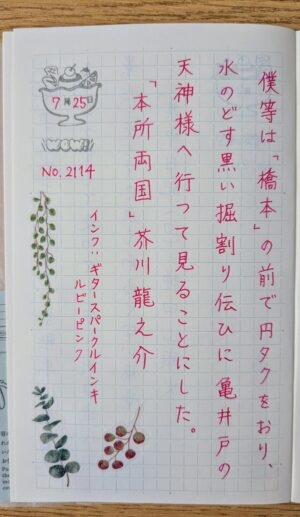 僕等は「橋本」の前で円タクをおり、
水のどす黒い掘割り伝ひに亀井戸の
天神様へ行つて見ることにした。
「本所両国」芥川龍之介
インク:ギタースパークルインキ
ルビーピンク
7月25日
WOW!!
No. 2114